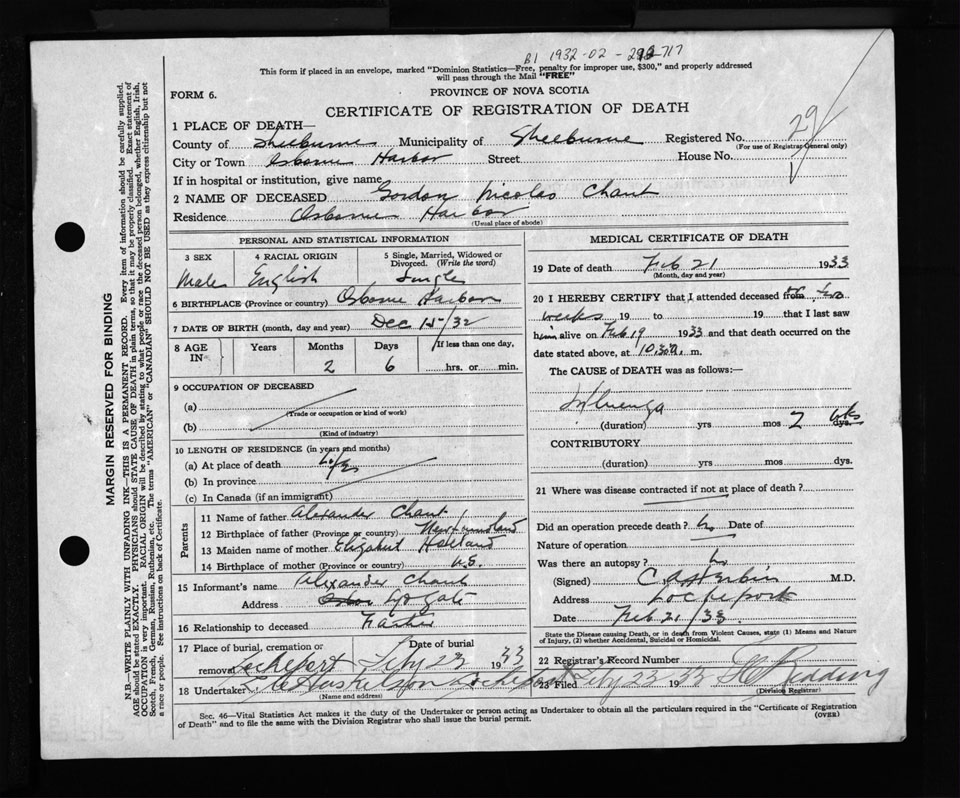 B1 1932-02-292717
This form if placed in an envelope, marked "Dominion Statistics—Free, penalty for improper use, $300," and properly addressed
will pass through the Mail "FREE"
FORM 6.
PROVINCE OF NOVA SCOTIA
CERTIFICATE OF REGISTRATION OF DEATH
1 PLACE OF DEATH—
County of Shelburne Municipality of Shelburne Registered No. 29
(For use of Registrar General only)
City or Town Osborne Harbor Street House No.
If in hospital or institution, give name
2 NAME OF DECEASED Gordon Nicolas Chant
Residence Osborne Harbor
(Usual place of abode)
PERSONAL AND STATISTICAL INFORMATION
3 SEX 4 RACIAL ORIGIN 5 Single, Married, Widowed or
Divorced. (Write the word)
Male English Single
6 BIRTHPLACE (Province or country) Osborne Harbor
7 DATE OF BIRTH (month, day and year) Dec 15/32
8 AGE Years Months Days If less than one day,
IN 2 6 hrs. or min.
9 OCCUPATION OF DECEASED
(a)
(Trade or occupation or kind of work)
(b)
(Kind of industry)
10 LENGTH OF RESIDENCE (in years and months)
(a) At place of death Life
(b) In province
(c) In Canada (if an immigrant)
Parents
11 Name of father Alexander Chant
12 Birthplace of father (Province or country) Newfoundland
13 Maiden name of mother Elizabeth Holland
14 Birthplace of mother (Province or country) N.S.
15 Informant's name Alexander Chant
Address Lydgate
16 Relationship to deceased Father
17 Place of burial, cremation or Date of burial
removal Lockeport Feby 23 1933
18 Undertaker Lockeport
(Name and address)
MEDICAL CERTIFICATE OF DEATH
19 Date of death Feb 21 1933
(Month, day and year)
20 I HEREBY CERTIFY that I attended deceased from for two
weeks, 19 to 19 that I last saw
him alive on Feb 19 1933 and that death occurred on
date stated above, at 10.30 a. m.
The CAUSE of DEATH was as follows:—
Influenza
(duration) yrs mos 2 wks dys.
CONTRIBUTORY
(duration) yrs mos dys.
21 Where was disease contracted if not at place of death?
Did an operation precede death? No Date of
Nature of operation
Was there an autopsy? No
(Signed) M.D.
Address Lockeport
Date Feb. 21/33.
State the Disease causing Death, or in death from Violent Causes, state (1) Means and Nature
of Injury, (2) whether Accidental, Suicidal or Homicidal.
22 Registrar's Record Number
23 Filed Feby 23 1933 Redding
(Division Registrar)
Sec. 46—Vital Statistics Act makes it the duty of the Undertaker or person acting as Undertaker to obtain all the particulars required in the "Certificate of Registration
of Death" and to file the same with the Division Registrar who shall issue the burial permit.
(OVER)
MARGIN RESERVED FOR BINDING
N.B.—WRITE PLAINLY WITH UNFADING INK—THIS IS A PERMANENT RECORD. Every item of information should be carefully supplied.
AGE should be stated EXACTLY. PHYSICIANS should STATE CAUSE OF DEATH in plain terms, so that it may be properly classified. Exact statement of
OCCUPATION is very important. RACIAL ORIGIN will be described by stating to what people or race the deceased person belonged, whether English, Irish,
Scotch, French, German, Russian, Ruthenian, etc. The terms "AMERICAN" or "CANADIAN" SHOULD NOT BE USED as they express citizenship but not
a race or people. See instructions on back of Certificate.